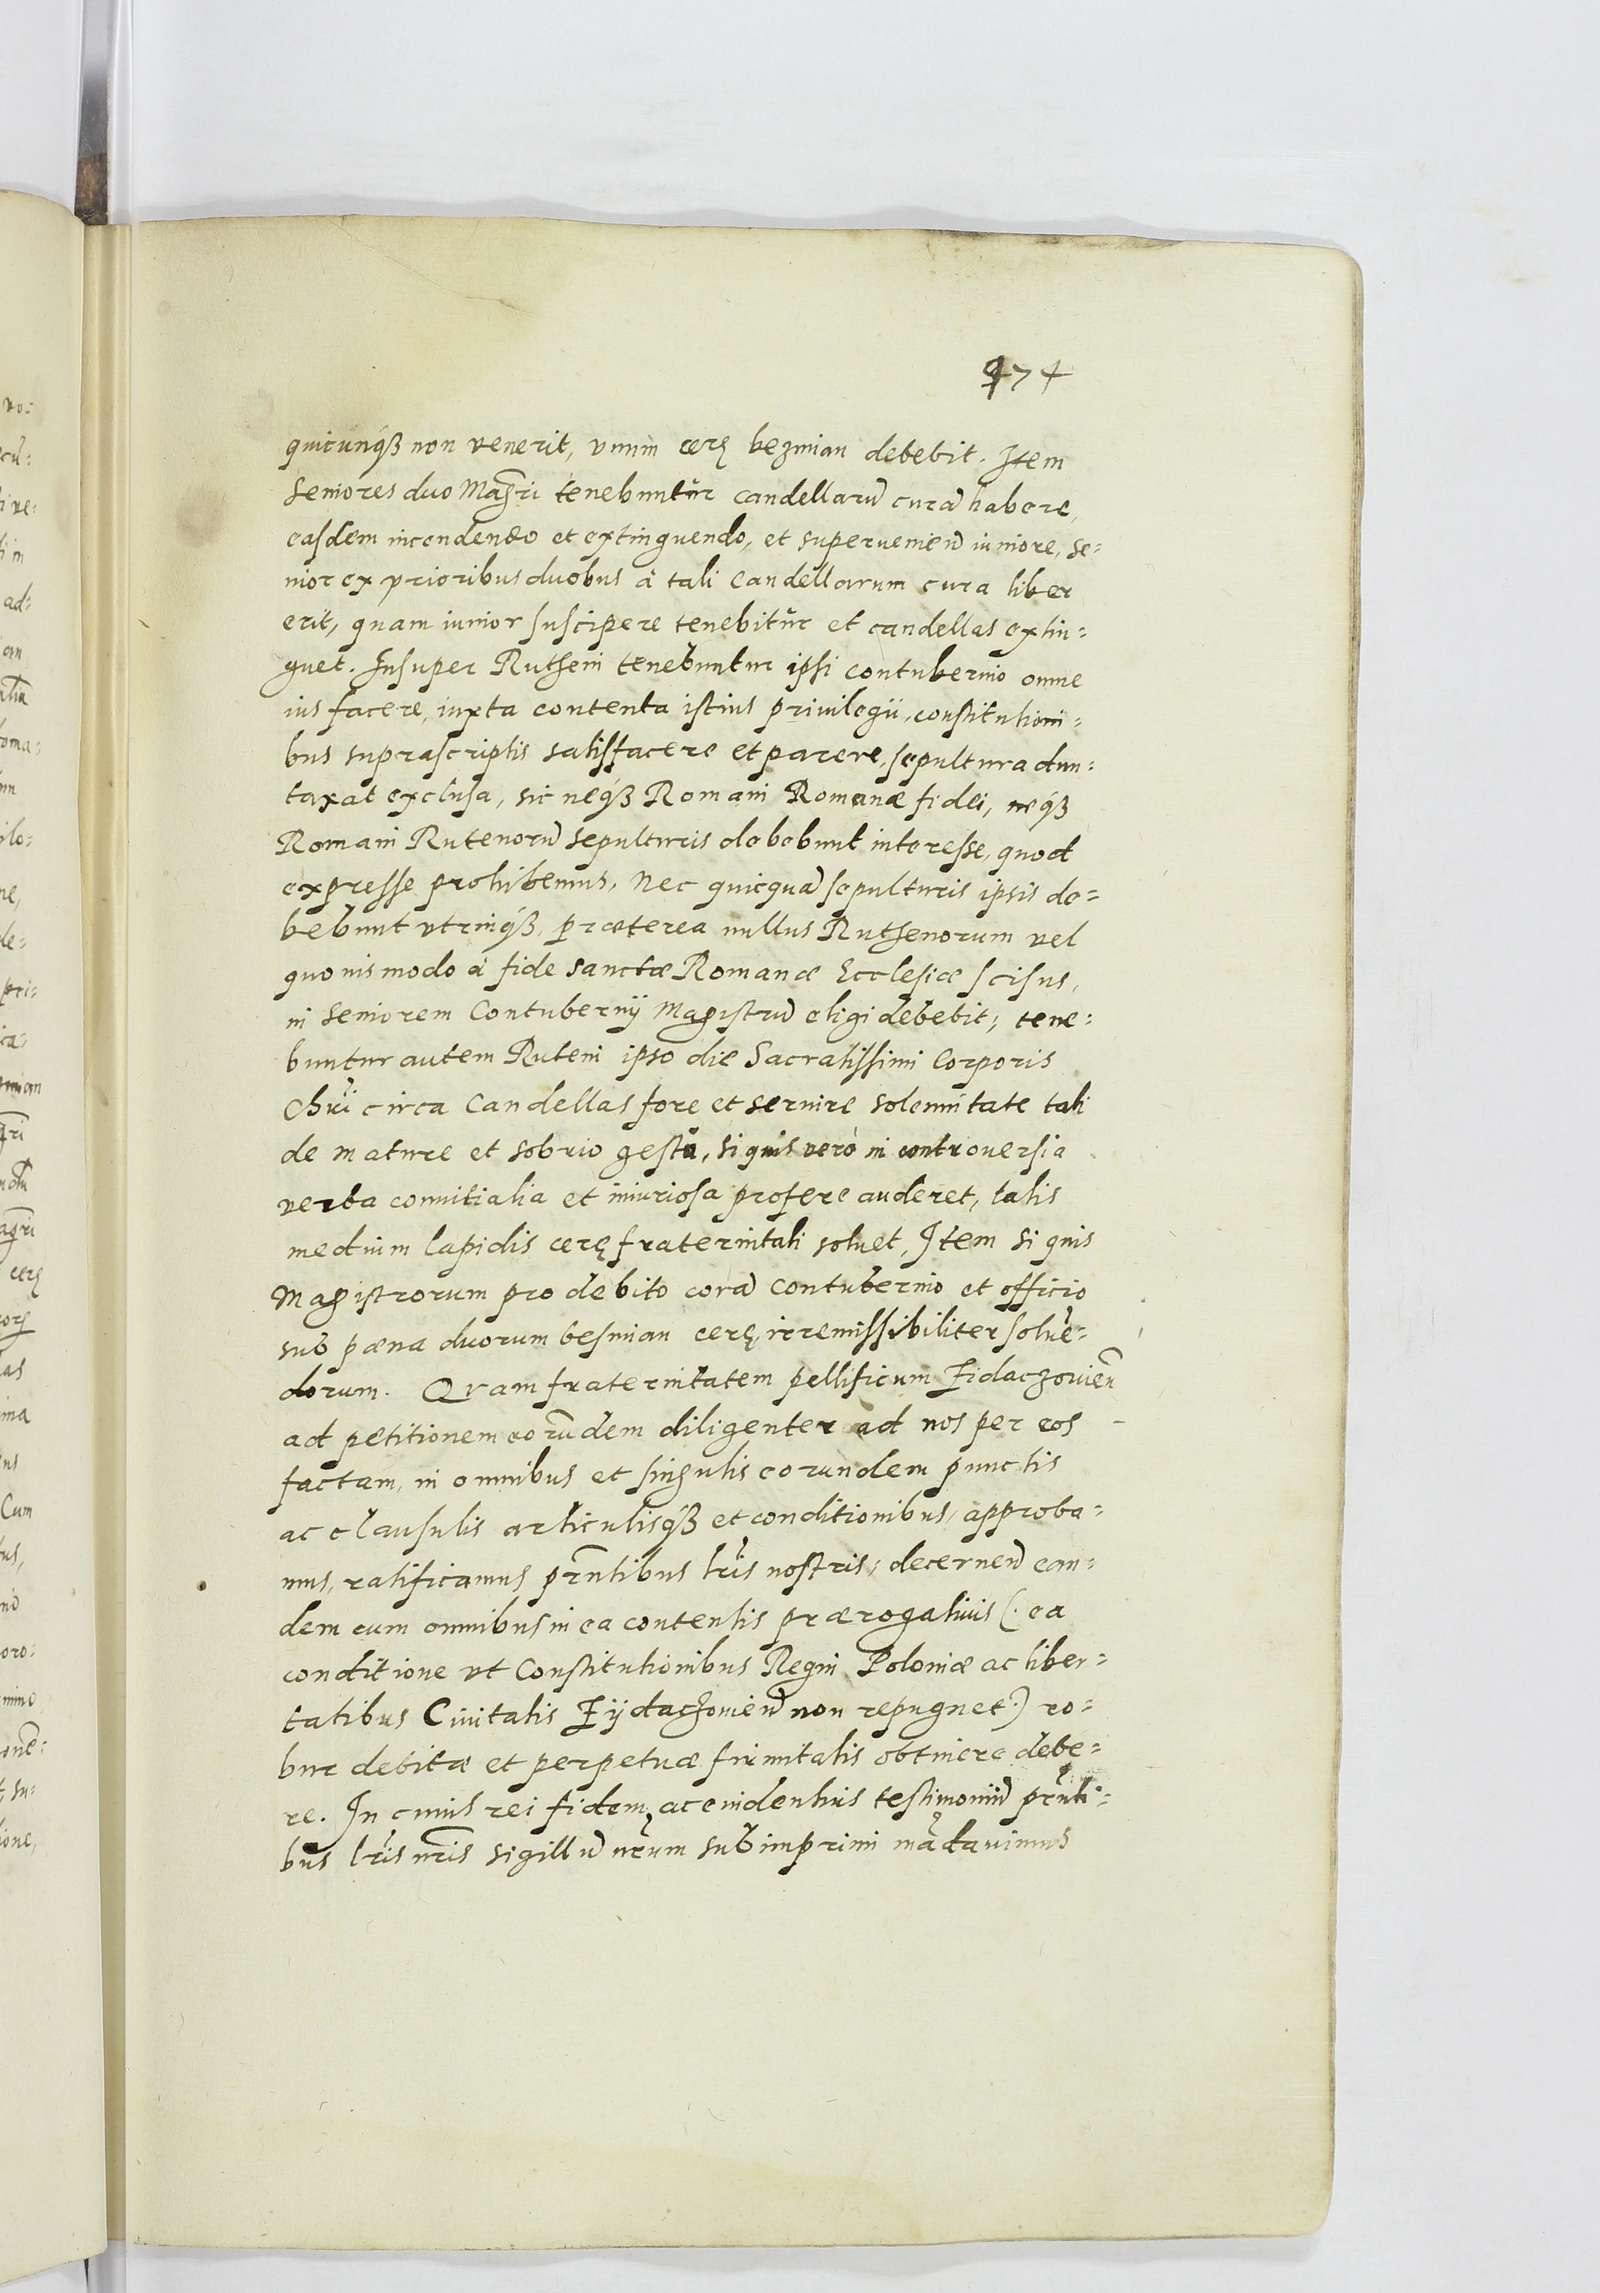 974
quicunq́ß non venerit, vnum cerę bezmian debebit. Item
Seniores duo Magr̃i tenebuntur candellarũ curã habere,
easdem incendendo et extinguendo, et superueniend̃ iuniore, se=
nior ex prioribus duobus à tali candellarum cura liber
erit, quam iunior suscipere tenebitur et candellas extin=
guet. Insuper Rutheni tenebuntur ipsi contubernio omne
ius facere, iuxta contenta istius priuilegii, constitutioni=
bus suprascriptis satisfacere et parere, sepultura dun=
taxat exclusa, sic neq́ß Romani Romanæ fidei, neq́ß
Romani Rutenorũ sepulturis debebunt interesse, quod
expresse prohibemus, nec quicquã sepulturis ipsis de=
bebunt vtrinq́ß, præterea nullus Ruthenorum vel
quouismodo à fide sanctæ Romanæ Ecclesiæ scisus,
in Seniorem Contubernij Magistrũ eligi debebit; tene=
buntur autem Ruteni ipso die Sacratissimi Corporis
Chr̃i circa Candellas fore et seruire solennitate tali
de mature et sobrio gestu, si quis verò in controuersia
verba comitialia et iniuriosa profere auderet, talis
medium lapidis cerę fraternitati soluet, Item si quis
Magistrorum pro debito corã Contubernio et officio
sub pæna duorum besmian cerę, irremissibiliter soluẽ=
dorum. Qvam fraternitatem pellificum Zidaczouieñ
ad petitionem eorũdem diligenter ad nos per eos
factam, in omnibus et singulis eorundem punctis
ac clausulis articulisq́ß et conditionibus, approba=
mus, ratificamus pr̃ntibus lr̃is nostris; decernend̃ ean=
dem cum omnibus in ea contentis prærogatiuis (. ea
conditione vt Constitutionibus Regni Poloniæ ac liber=
tatibus Ciuitatis Zÿdaczouieñ non repugnet.) ro=
bur debitæ et perpetuæ firmitatis obtinere debe=
re. In cuius rei fidem, ac euidentius testimoniũ pr̃nti=
bus lr̃is nr̃is sigillũ nr̃um subimprimi mãdauimus